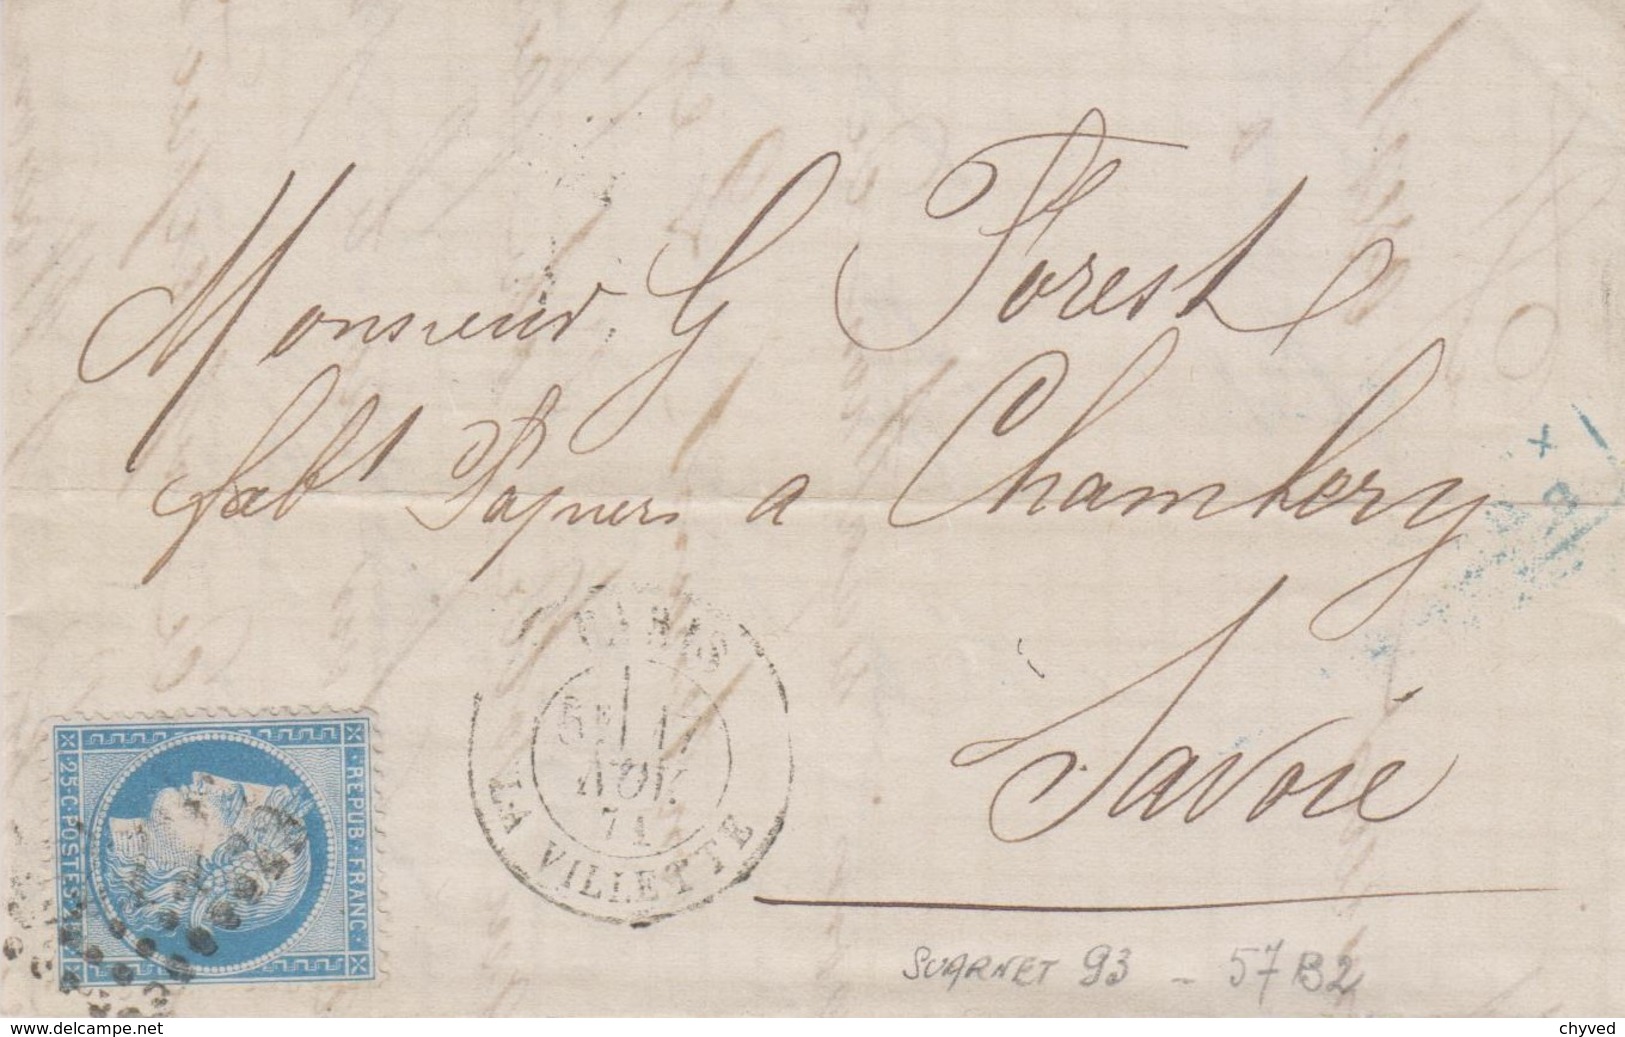 Monsieur G Forest
fabt Papiers a Chambery
Savoie
PARIS
5E
17
NOV.
71
LA VILLETTE
REPUB·FRANC·
25·C·POSTES·25·C
SUARNET 93 - 57 B2
delcampe.net
chyved